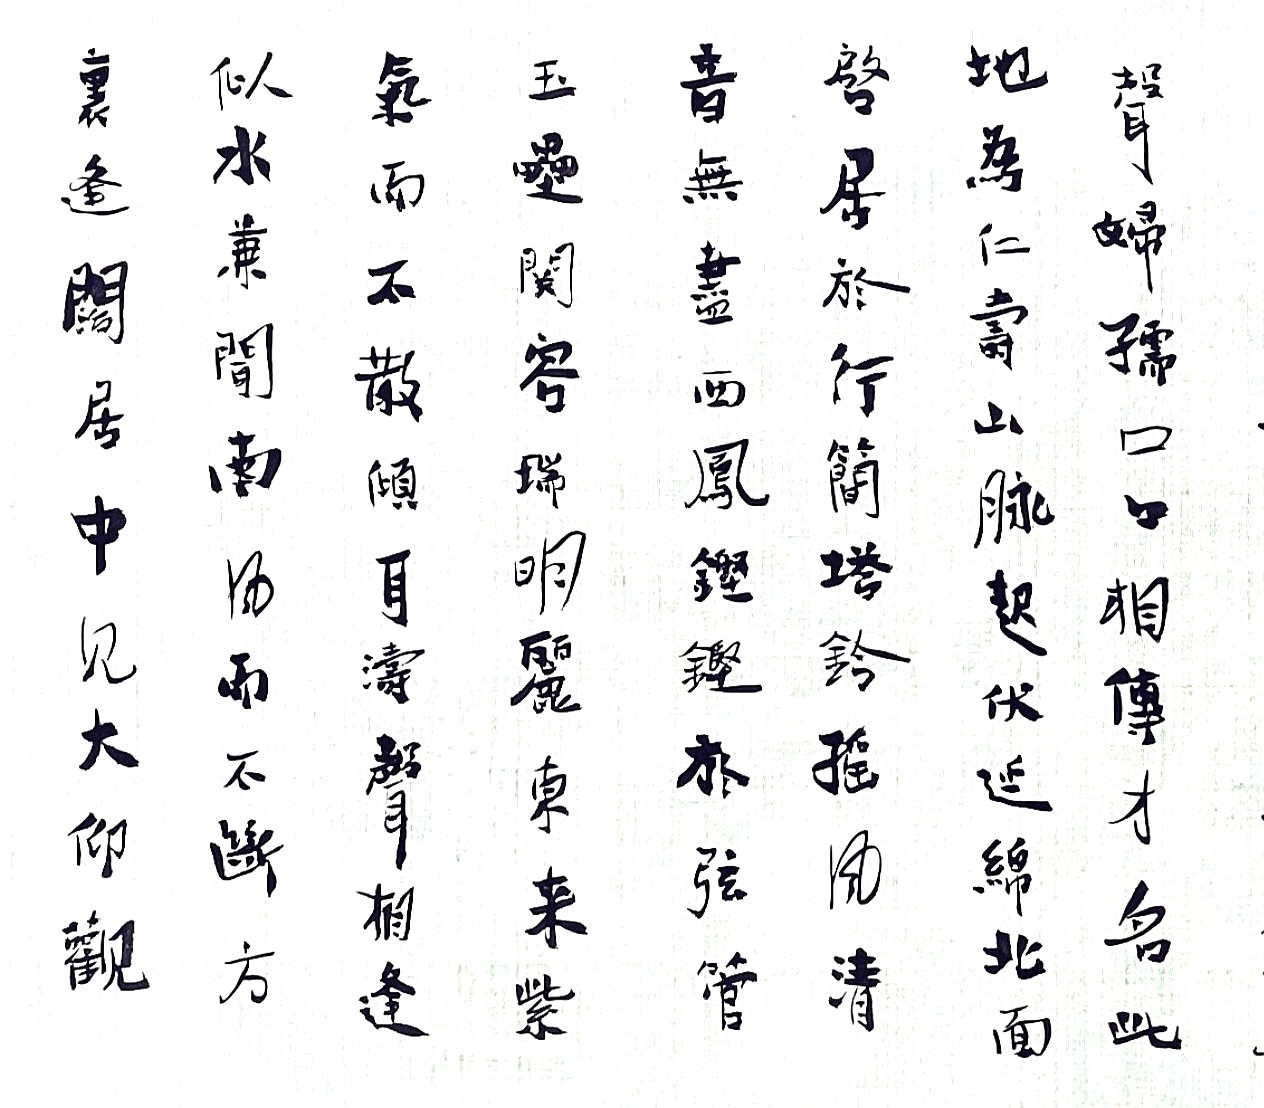 聲婦孺口口相傳才名此
地為仁壽山脉起伏延綿北面
啓居於行簡塔鈴搖風清
音無盡西鳳鏗鏗於弦管
玉壘関容瑞明麗東来紫
氣而不散傾耳濤聲相逢
似水兼聞南風而不斷方
裏逢闊居中见大仰觀